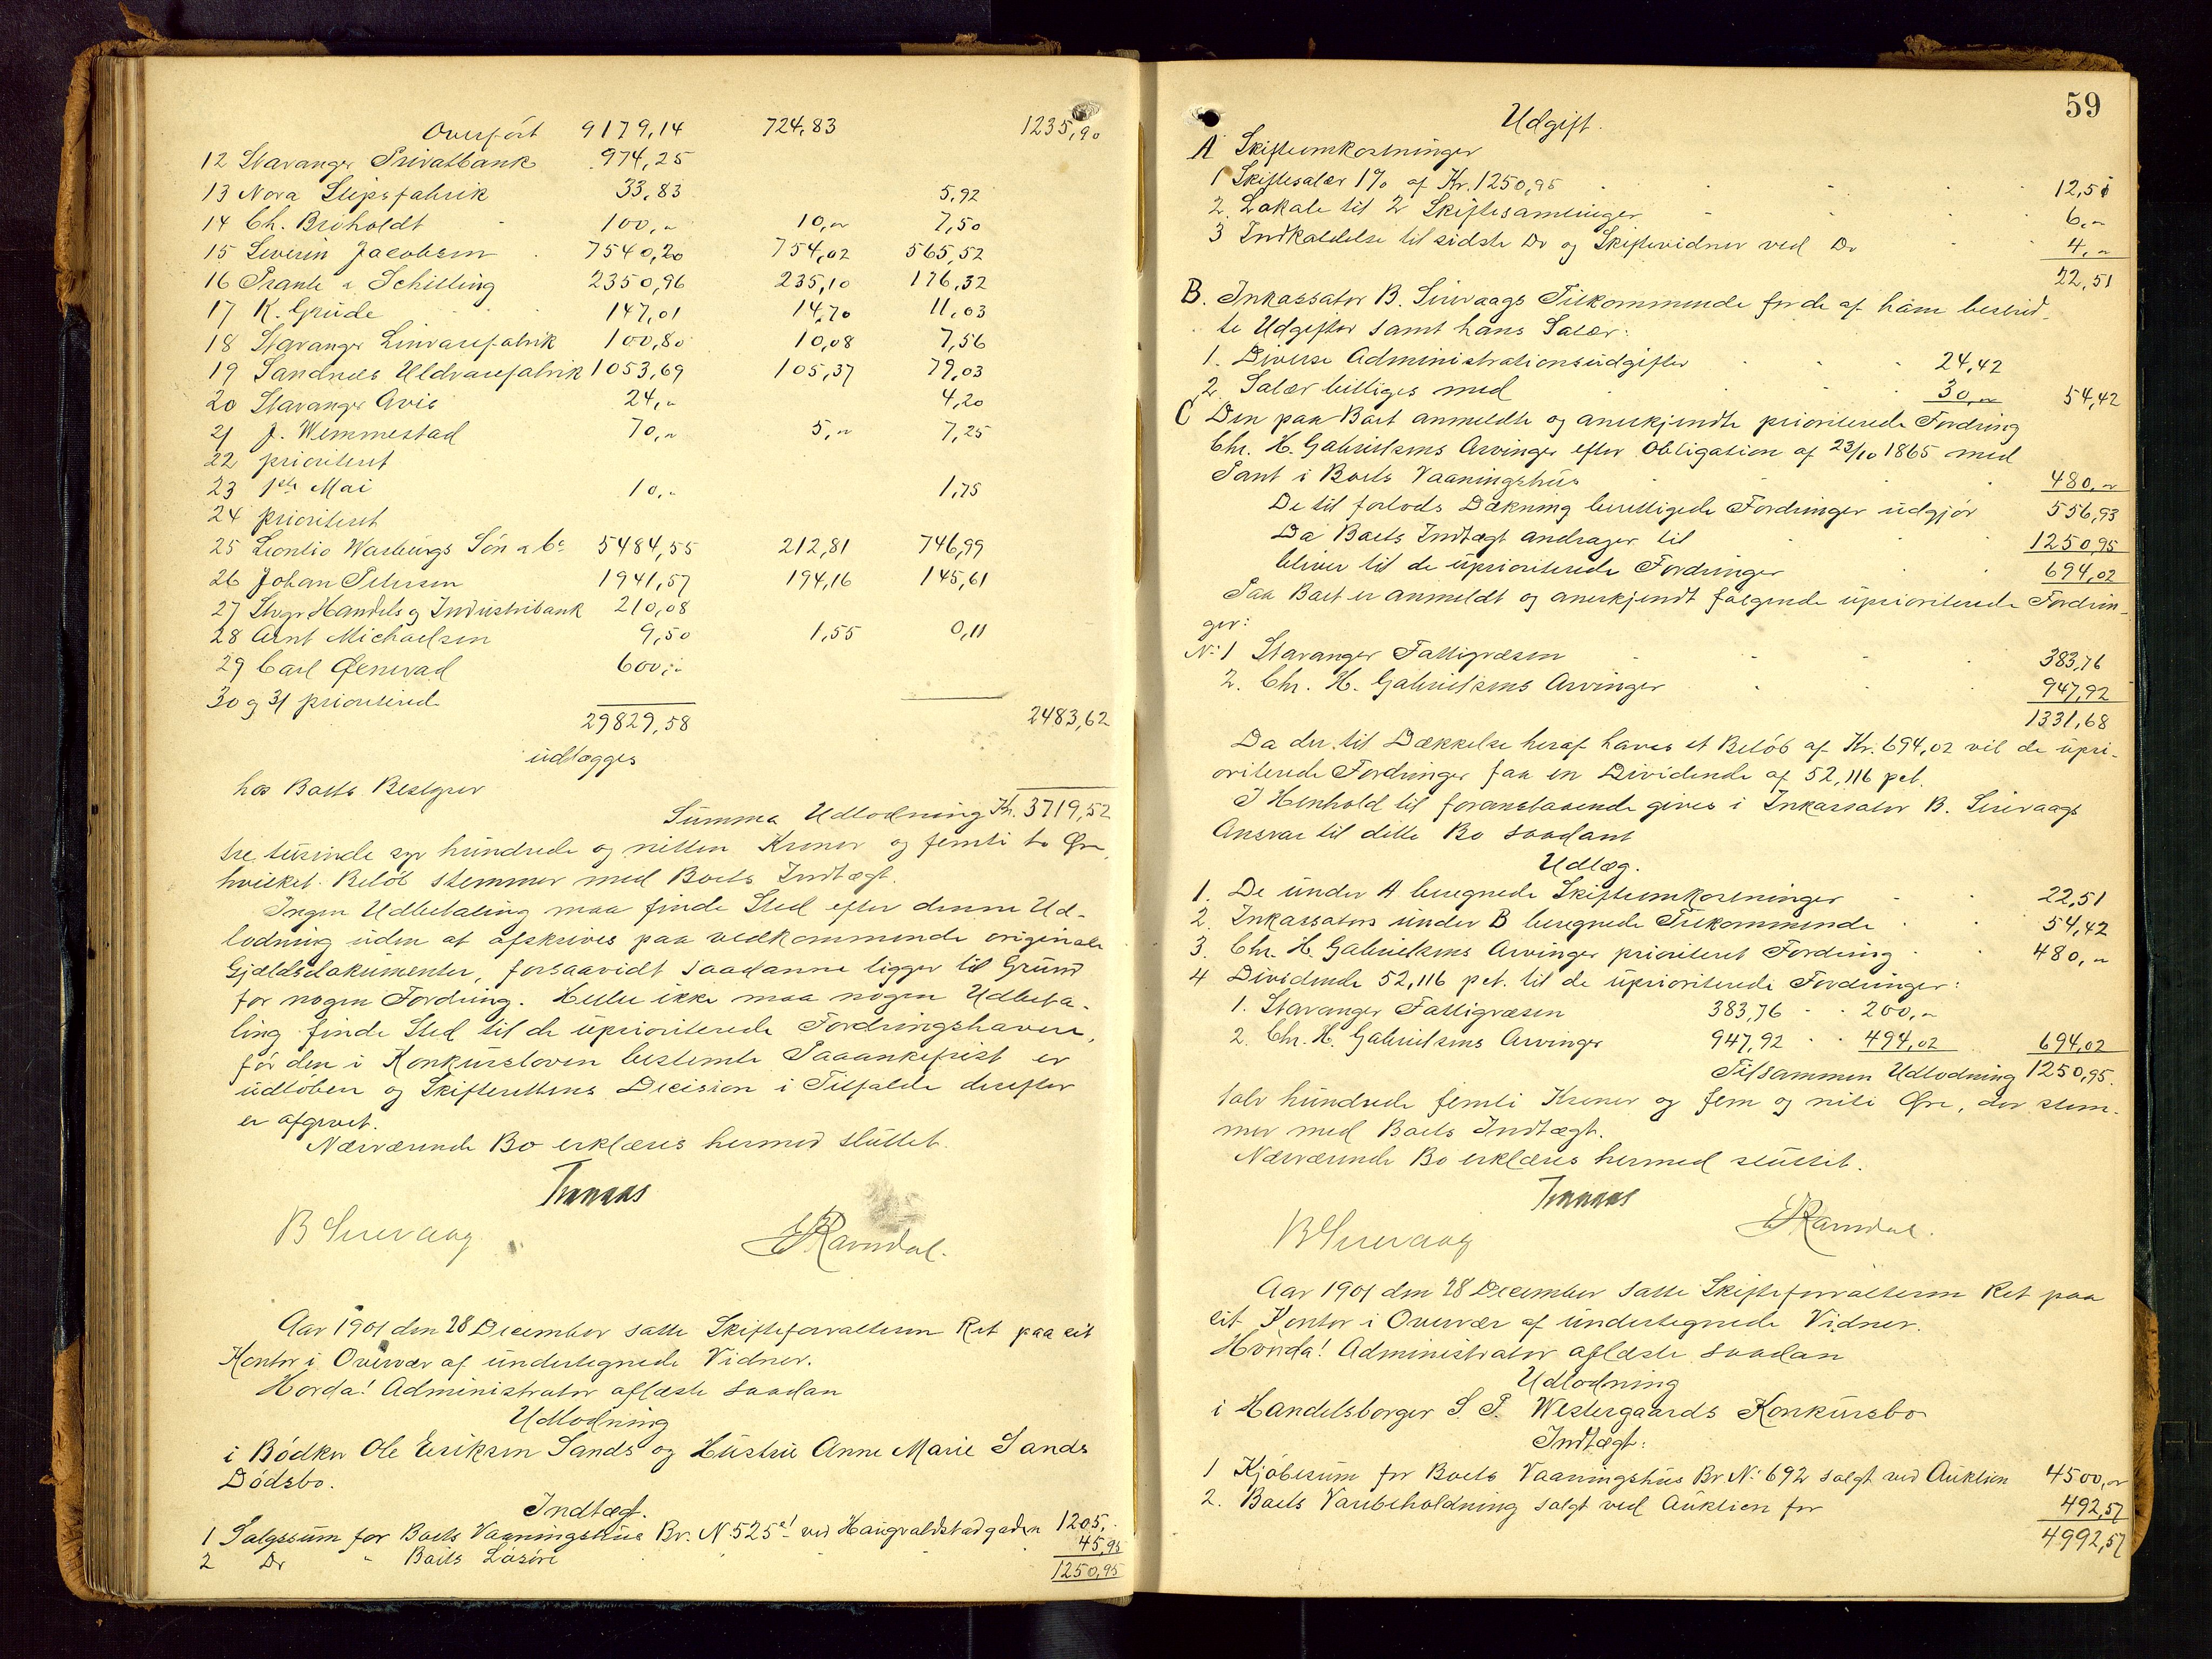 Overført 9179,14 724,83 1235,90
12 Stavanger Privatbank 974,25
13 Nora Slipsfabrik 33,83 5,92
14 Ch. Broholdt 100,„ 10,„ 7,50
15 Severin Jacobsen 7540,20 754,02 565,52
16 Prante & Schilling 2350,96 235,10 176,32
17 K. Grude 147,01 14,70 11,03
18 Stavanger Linvarefabrik 100,80 10,08 7,56
19 Sandnæs Uldvarefabrik 1053,69 105,37 79,03
20 Stavanger Avis 24,„ 4,20
21 J. Wemmestad 70,„ 5,„ 7,25
22 prioriteret
23 1ste Mai 10,„ 1,75
24 prioriteret
25 Leontio Warburgs Søn & Co 5484,55 212,81 746,99
26 Johan Petersen 1941,57 194,16 145,61
27 Stvgr Handels og Industribank 210,08
28 Arnt Michaelsen 9,50 1,55 0,11
29 Carl Øenevad 600,„
30 og 31 prioritered
29829,58 2483,62
udlægges
hos Boets Bestyrer
Summa Udlodning Kr. 3719,52
tre tusinde syv hundrede og nitten Kroner og femti to Øre,
hvilket Beløb stemmer med Boets Indtægt.
Ingen Udbetaling maa finde Sted efter denne Ud-
lodning uden at afskrives paa vedkommende originale
Gjældsdokumenter, forsaavidt saadanne ligger til Grund
for nogen Fordring. Heller ikke maa nogen Udbeta-
ling finde Sted til de uprioriterede Fordringshavere,
før den i Konkursloven bestemte Paaankefrist er
udløben og Skifterettens Decision i Tilfælde derefter
er afgivet.
Nærværende Bo erklæres hermed sluttet.
B Sirevaag Ramdal.
Aar 1901 den 28 December satte Skifteforvalteren Ret paa sit
Kontor i Overvær af undertegnede Vidner.
Hvorda! Administrator aflæste saadan
Udlodning
i Bødker Ole Eriksen Sands og Hustru Anne Marie Sands
Dødsbo.
Indtægt.
1 Salgssum for Boets Vaaningshus Br. N. 525 a1 ved Haugvaldstadgaden 1205,„
2 Do „ Boets Løsøre 45,95
1250,95
59
Udgift.
A Skifteomkostninger
1 Skiftesalær 1% af Kr. 1250,95 12,51
2. Lokale til 2 Skiftesamlinger 6,„
3 Indkaldelse til sidste Do og Skiftevidner ved Do 4,„
22,51
B. Inkassator B. Sirevaags Tilkommende for de af ham bestrid-
te Udgifter samt hans Salær:
1. Diverse Administrationsudgifter 24,42
2. Salær billiges med 30,„ 54,42
C Den paa Boet anmeldte og anerkjendte prioriterede Fordring
Chr. H. Gabrielsens Arvinger efter Obligation af 23/10 1865 med
Pant i Boets Vaaningshus 480,„
De til forlods Dækning berettigede Fordringer udgjør 556,93
Da Boets Indtægt andrager til 1250,95
bliver til de uprioriterede Fordringer 694,02
Paa Boet er anmeldt og anerkjendt følgende uprioriterede Fordrin-
ger:
N: 1 Stavanger Fattigvæsen 383,76
2. Chr. H. Gabrielsens Arvinger 947,92
1331,68
Da der til Dækkelse heraf haves et Beløb af Kr. 694,02 vil de upri-
oriterede Fordringer faa en Dividende af 52,116 pct.
I Henhold til foranstaaende gives i Inkassator B. Sirevaags
Ansvar til dette Bo saadant
Udlæg.
1. De under A beregnede Skifteomkostninger 22,51
2. Inkassators under B beregnede Tilkommende 54,42
3. Chr. H. Gabrielsens Arvinger prioriteret Fordring 480,„
4 Dividende 52,116 pct. til de uprioriterede Fordringer:
1. Stavanger Fattigvæsen 383,76 200,„
2. Chr. H. Gabrielsens Arvinger 947,92 494,02 694,02
Tilsammen Udlodning 1250,95.
tolv hundrede femti Kroner og fem og niti Øre, der stem-
mer med Boets Indtægt.
Nærværende Bo erklæres hermed sluttet.
B Sirevaag Ramdal.
Aar 1901 den 28 December satte Skifteforvalteren Ret paa
sit Kontor i Overvær af undertegnede Vidner.
Hvorda! Administrator aflæste saadan
Udlodning
i Handelsborger S. P. Westergaards Konkursbo
Indtægt:
1 Kjøbesum for Boets Vaaningshus Br N: 692 solgt ved Auktion 4500,„
2. Boets Varebeholdning solgt ved Auktion for 492,57
4992,57